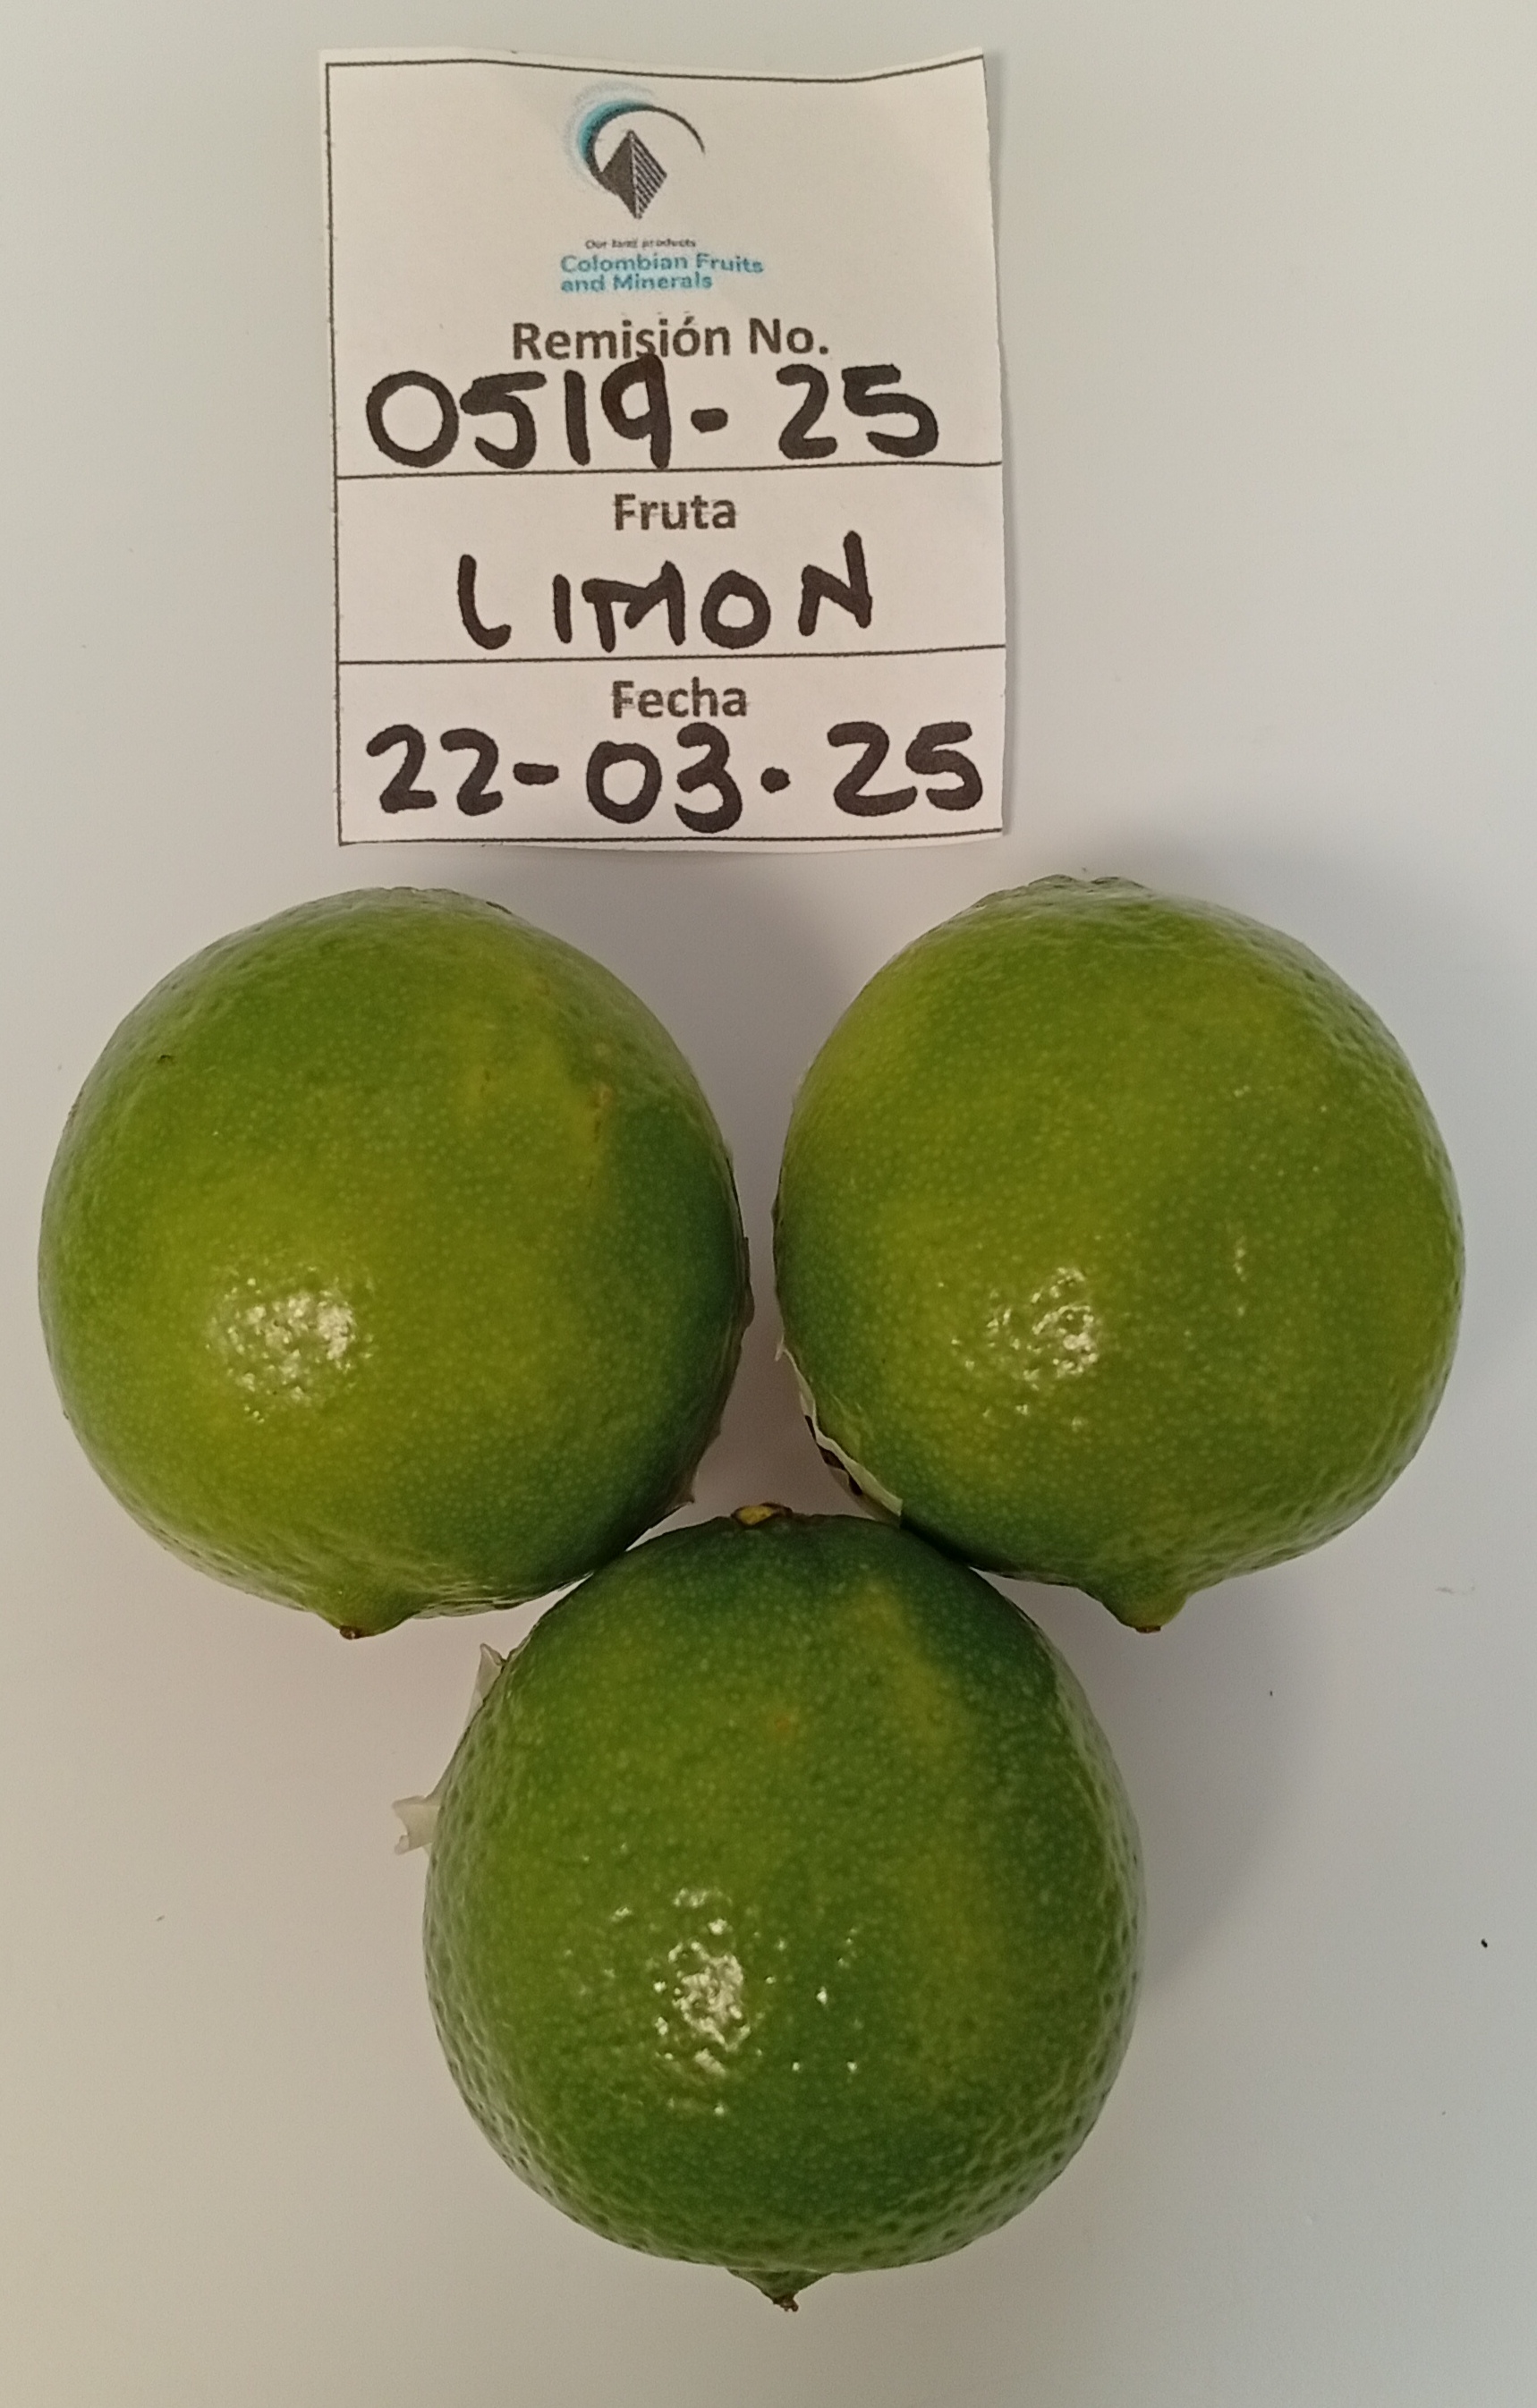 Our land products
Colombian Fruits
and Minerals
Remisión No.
0519-25
Fruta
LIMON
Fecha
22-03.25